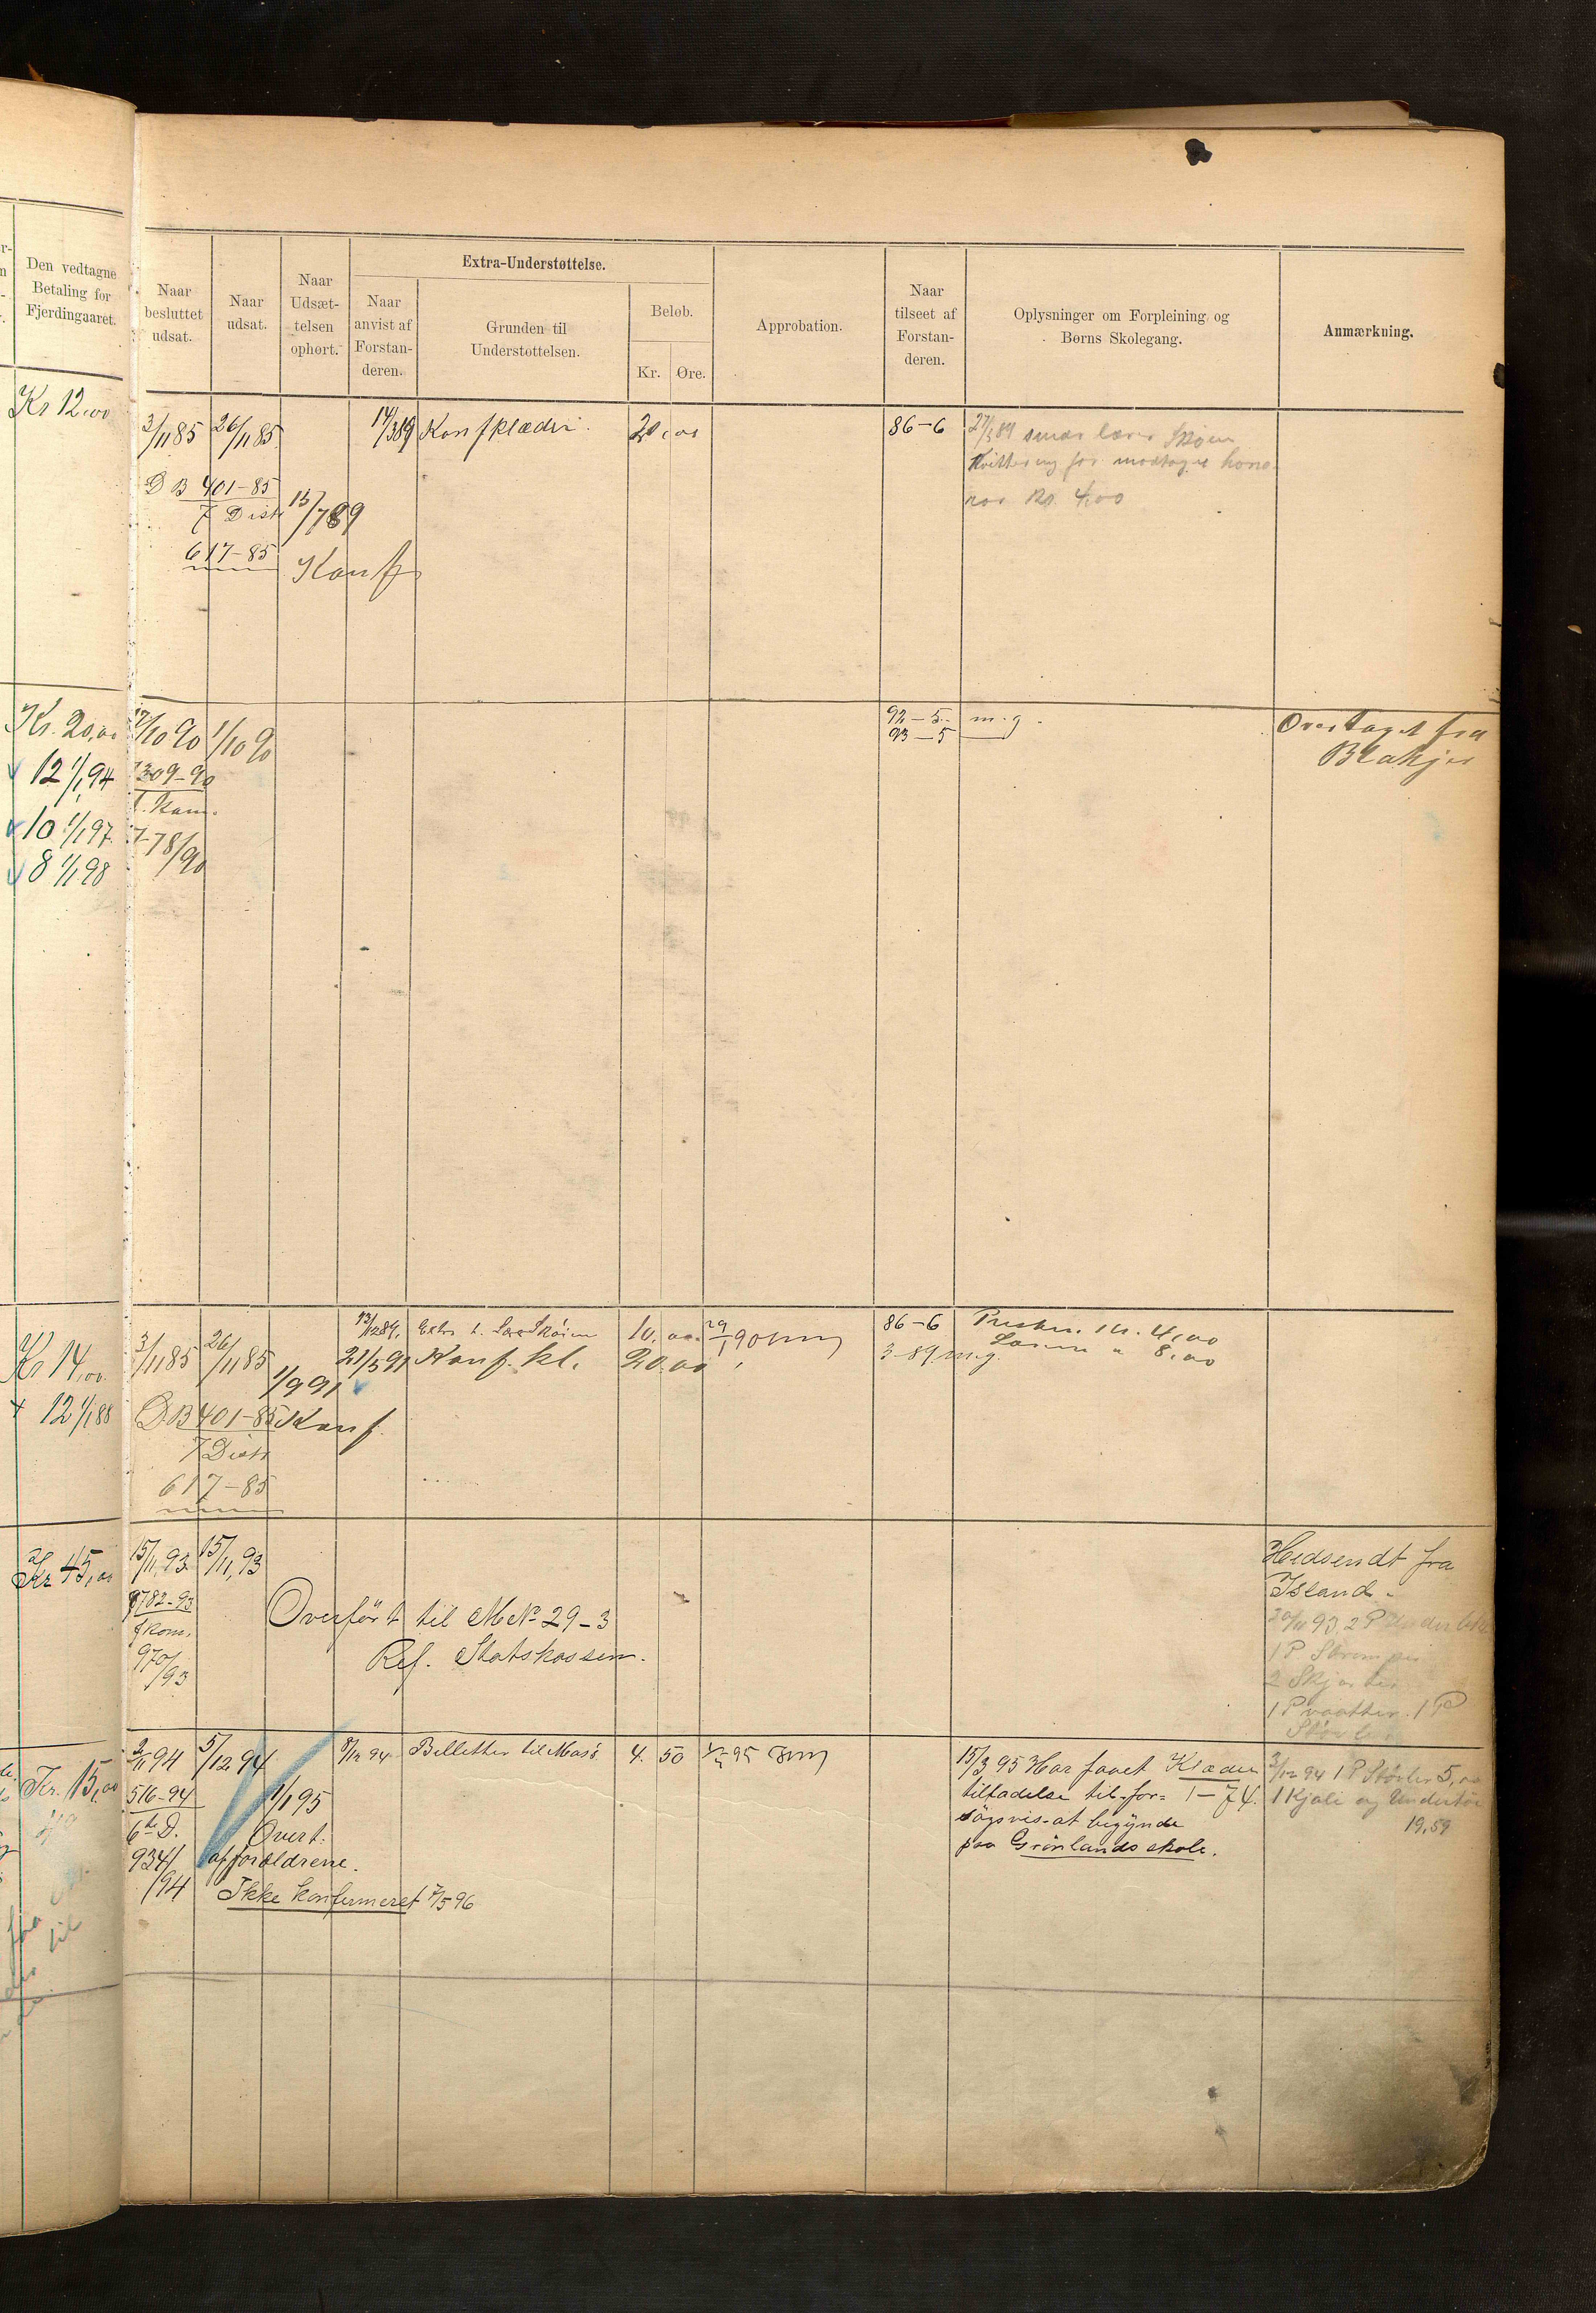 Den vedtagne
Betaling for
Fjerdingaaret.
Naar
besluttet
udsat.
Naar
udsat.
Naar
Udsæt-
telsen
ophørt.
Extra-Understøttelse.
Naar
anvist af
Forstan-
deren.
Grunden til
Understøttelsen.
Beløb.
Kr.
Øre.
Approbation.
Naar
tilseet af
Forstan-
deren.
Oplysninger om Forpleining og
Børns Skolegang.
Anmærkning.
Kr 12,00
3/11 85
26/11 85
14/3 89
Konfklæder.
20,00
86-6
27/3 89
Kvittering for modtaget hono-
rar Kr. 4,00
D B 401-85
7 Distr
617-85
15/7 89
Konf
Kr. 20,00
12 1/1 94
10 1/1 97
8 1/1 98
/10 90
1/10 90
309-90
78/90
92-5
93-5
m.g.
Overtaget fra
Kr 14,00
12 1/1 88
3/11 85
26/11 85
1/9 91
Konf.
D.B 401-85
7 Distr
617-85
21/5 91
Konf. kl.
10.00
20.00
86-6
3-89 m.g.
4,00
8,00
Kr 45,00
15/11 93
15/11 93
782-93
970/93
Overført til M No 29-3
Ref. Statskassen.
Hidsendt fra
Island.
30/11 93, 2 P
1 P Strømper
2 Skjorter
1 P vaatter. 1 P
Støvler
Kr. 15,00
2/11 94
5/12 94
516-94
6te D.
934/94
1/1 95
Overt.
af forældrene.
Ikke konfirmeret 7/5 96
8/12 94
Billetter til
4.
50
15/3 95 Har faaet Klæder
tilladelse til for- 1-74.
søgsvis at begynde
paa Grønlands skole.
3/12 94 1 P Støvler 5,00
1 Kjole og Undertøi
19,59